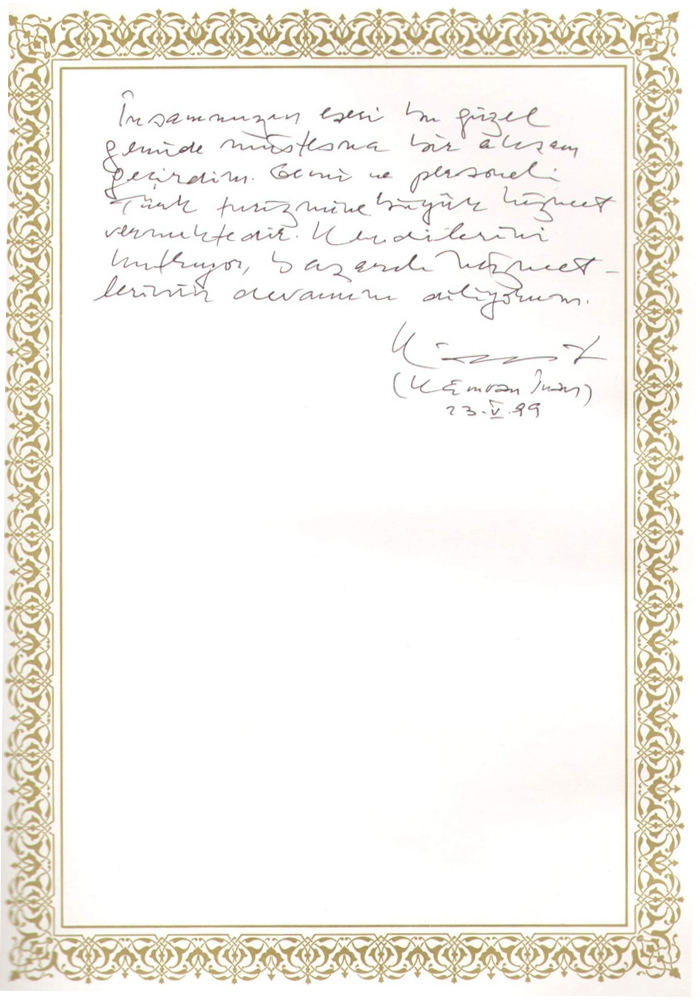 İnsanımızın eseri bu güzel
gemide müstesna bir akşam
geçirdim. Gemi ve personeli
Türk turizmine büyük hizmet
vermektedir. Kendilerini
kutluyor, başarılı hizmet-
lerinin devamını diliyorum.
(Kâmran İnan)
23.V.99